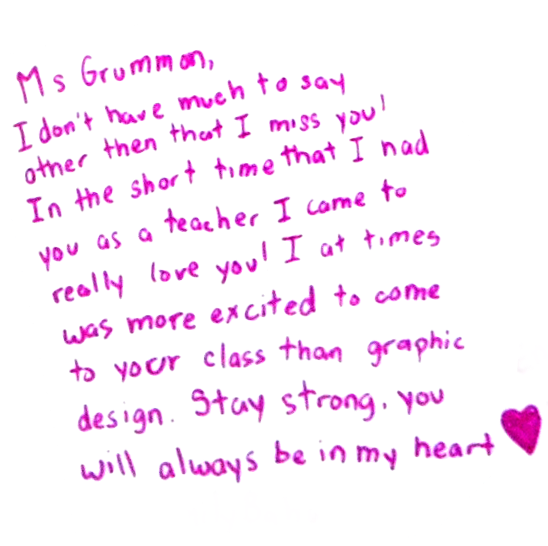 Ms Grummon,
I don't have much to say
other then that I miss you!
In the short time that I had
you as a teacher I came to
really love you! I at times
was more excited to come
to your class than graphic
design. Stay strong, you
will always be in my heart